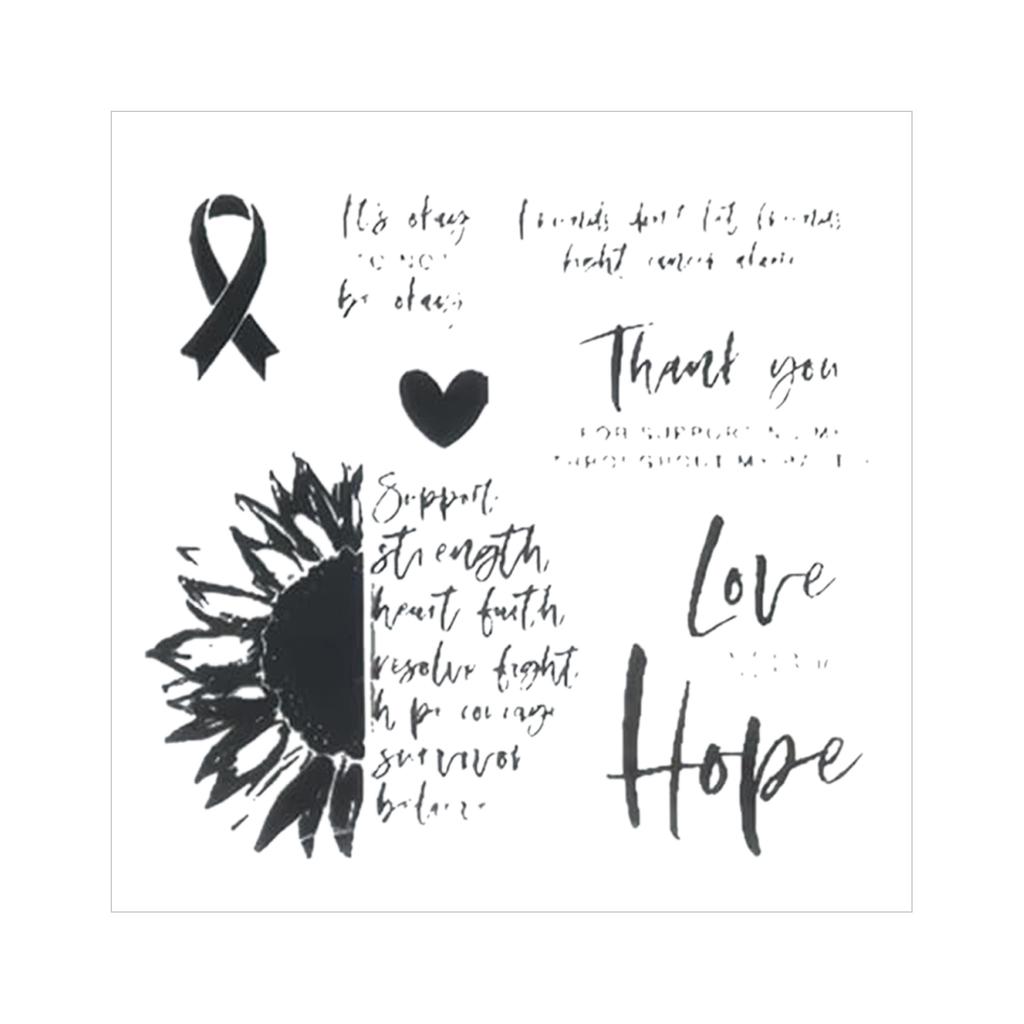 It's okay
TO NOT
be okay
friends don't let friends
fight cancer alone
Thank you
FOR SUPPORTING ME
THROUGHOUT MY
Support,
strength,
heart faith,
resolve fight,
hope courage
survivor
balance
Love
Hope